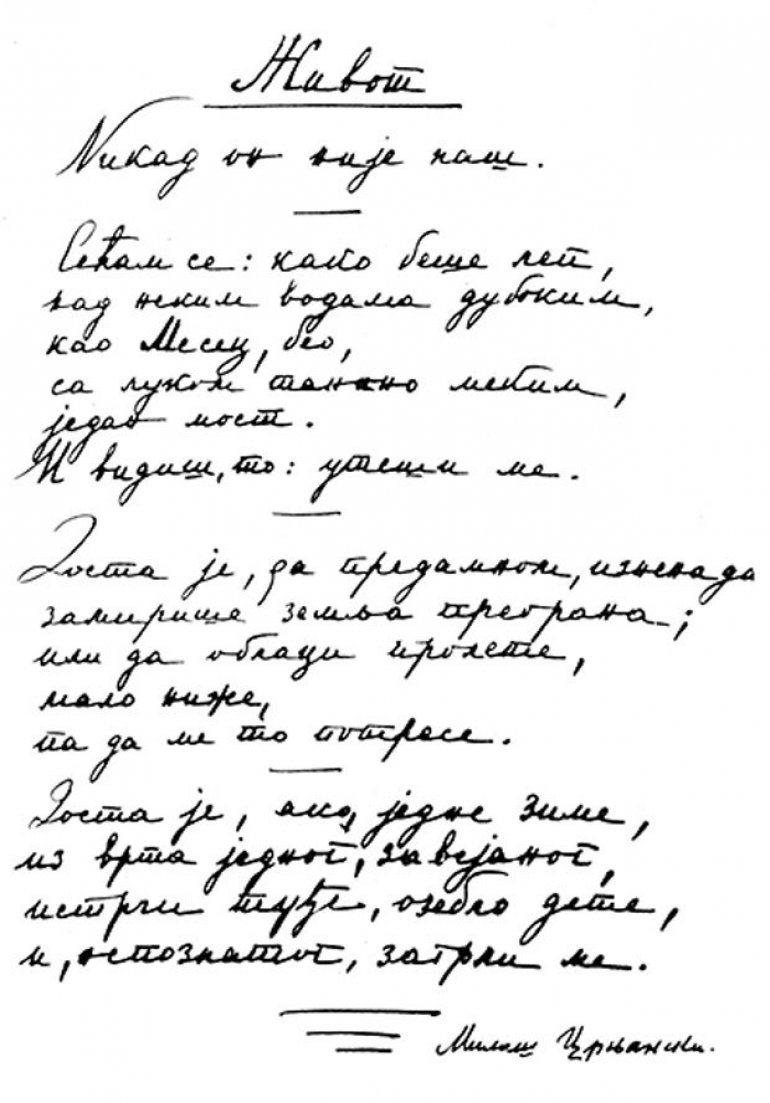 Живот
Никад он није наш.
Сећам се: како беше леп,
над неким водама дубоким,
као Месец, бео,
са луком танкно меким,
један мост.
И видиш, то: утеши ме.
Доста је, да предамном, изненада
замирише земља преорана;
или да облаци пролете,
мало ниже,
па да ме то потресе.
Доста је, ако, једне зиме,
из врта једног, завејаног,
истрчи туђе, озебло дете,
и, непознатог, загрли ме.
Милош Црњански.